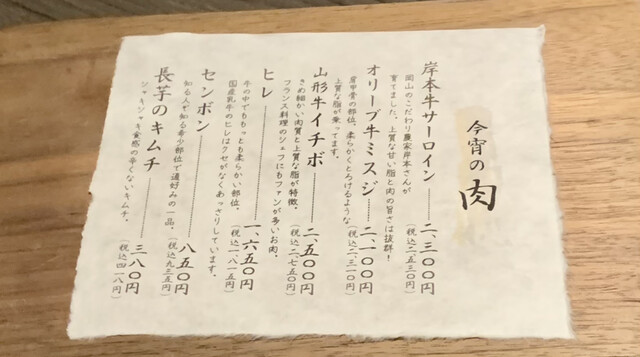 今宵の肉
岸本牛サーロイン 二、三〇〇円
岡山のこだわり農家岸本さんが
育てました。上質な甘い脂と肉の旨さは抜群!
(税込二、五三〇円)
オリーブ牛ミスジ 二、一〇〇円
肩甲骨の部位。柔らかくとろけるような
上質な脂が乗ってます。
(税込二、三一〇円)
山形牛イチボ 二、五〇〇円
きめ細かい肉質と上質な脂が特徴。
フランス料理のシェフにもファンが多いお肉。
(税込二、七五〇円)
ヒレ 一、六五〇円
牛の中でももっとも柔らかい部位。
国産乳牛のヒレはクセがなくあっさりしています。
(税込一、八一五円)
センボン 八五〇円
知る人ぞ知る希少部位で通好みの一品。
(税込九三五円)
長芋のキムチ 三八〇円
シャキシャキ食感の辛くないキムチ。
(税込四一八円)